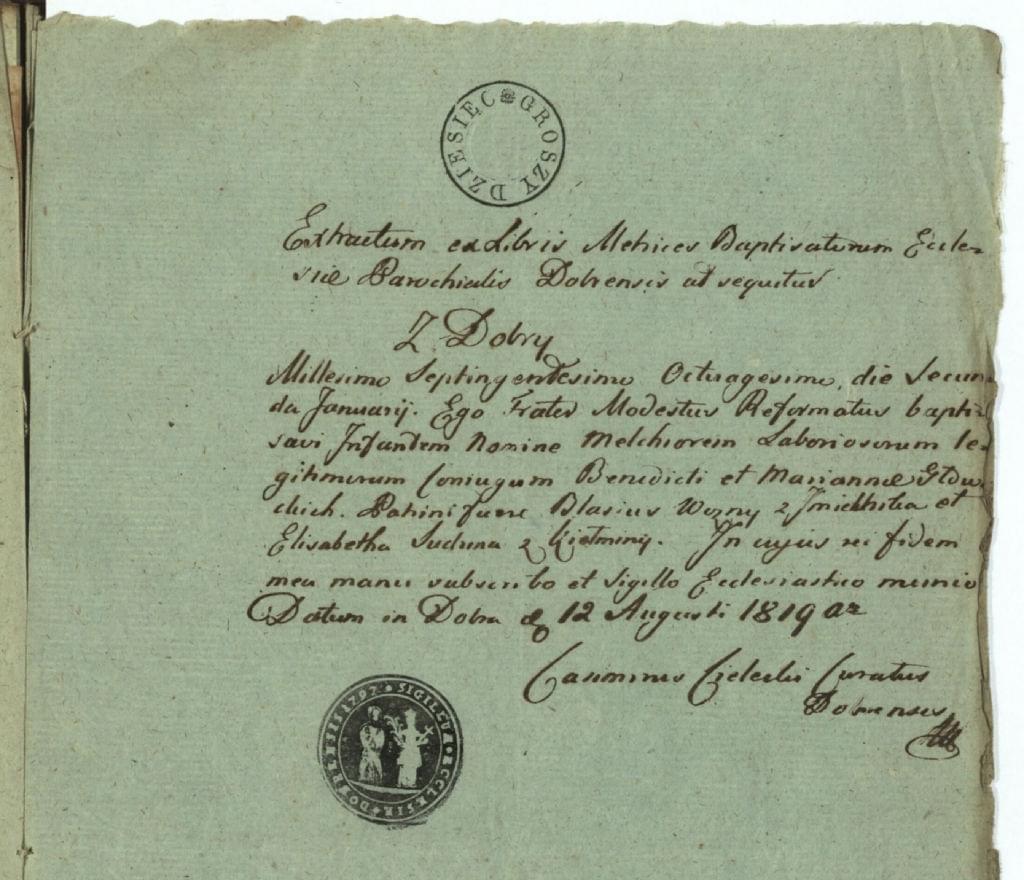 DZIESIĘC GROSZY
Extractum ex Libris Metrices Baptisatorum Eccle-
siæ Parochialis Dobrensis ut sequitur
Z Dobry
Millesimo Septingentesimo Octuagesimo, die Secun-
da Januarij. Ego Frater Modestus Reformatus bapti-
savi Infantem Nomine Melchiorem Laboriosorum le-
gitimorum Coniugum Benedicti et Mariannæ
Patrini fuere Blasius Wozny z et
Elisabetha z In cujus rei fidem
mea manu subscribo et Sigillo Ecclesiastico munio
Datum in Dobra d 12 Augusti 1819 ar
Casimirus Curatus
Dobrensis
SIGILLUM ECCLESIÆ DOBRENSIS 1797